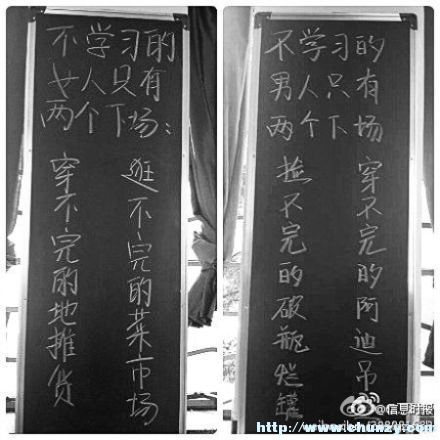 不学习的
女人只有
两个下场：
穿不完的地摊货
逛不完的菜市场
不学习的
男人只有
两个下场
捡不完的破瓶烂罐
穿不完的阿迪吊
@信息时报
http://www.chunzy.com